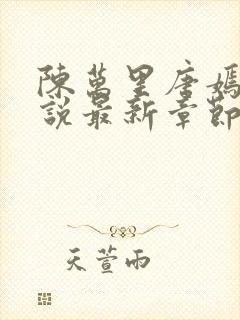 陳萬里唐嫣
說最新章節
天萱雨